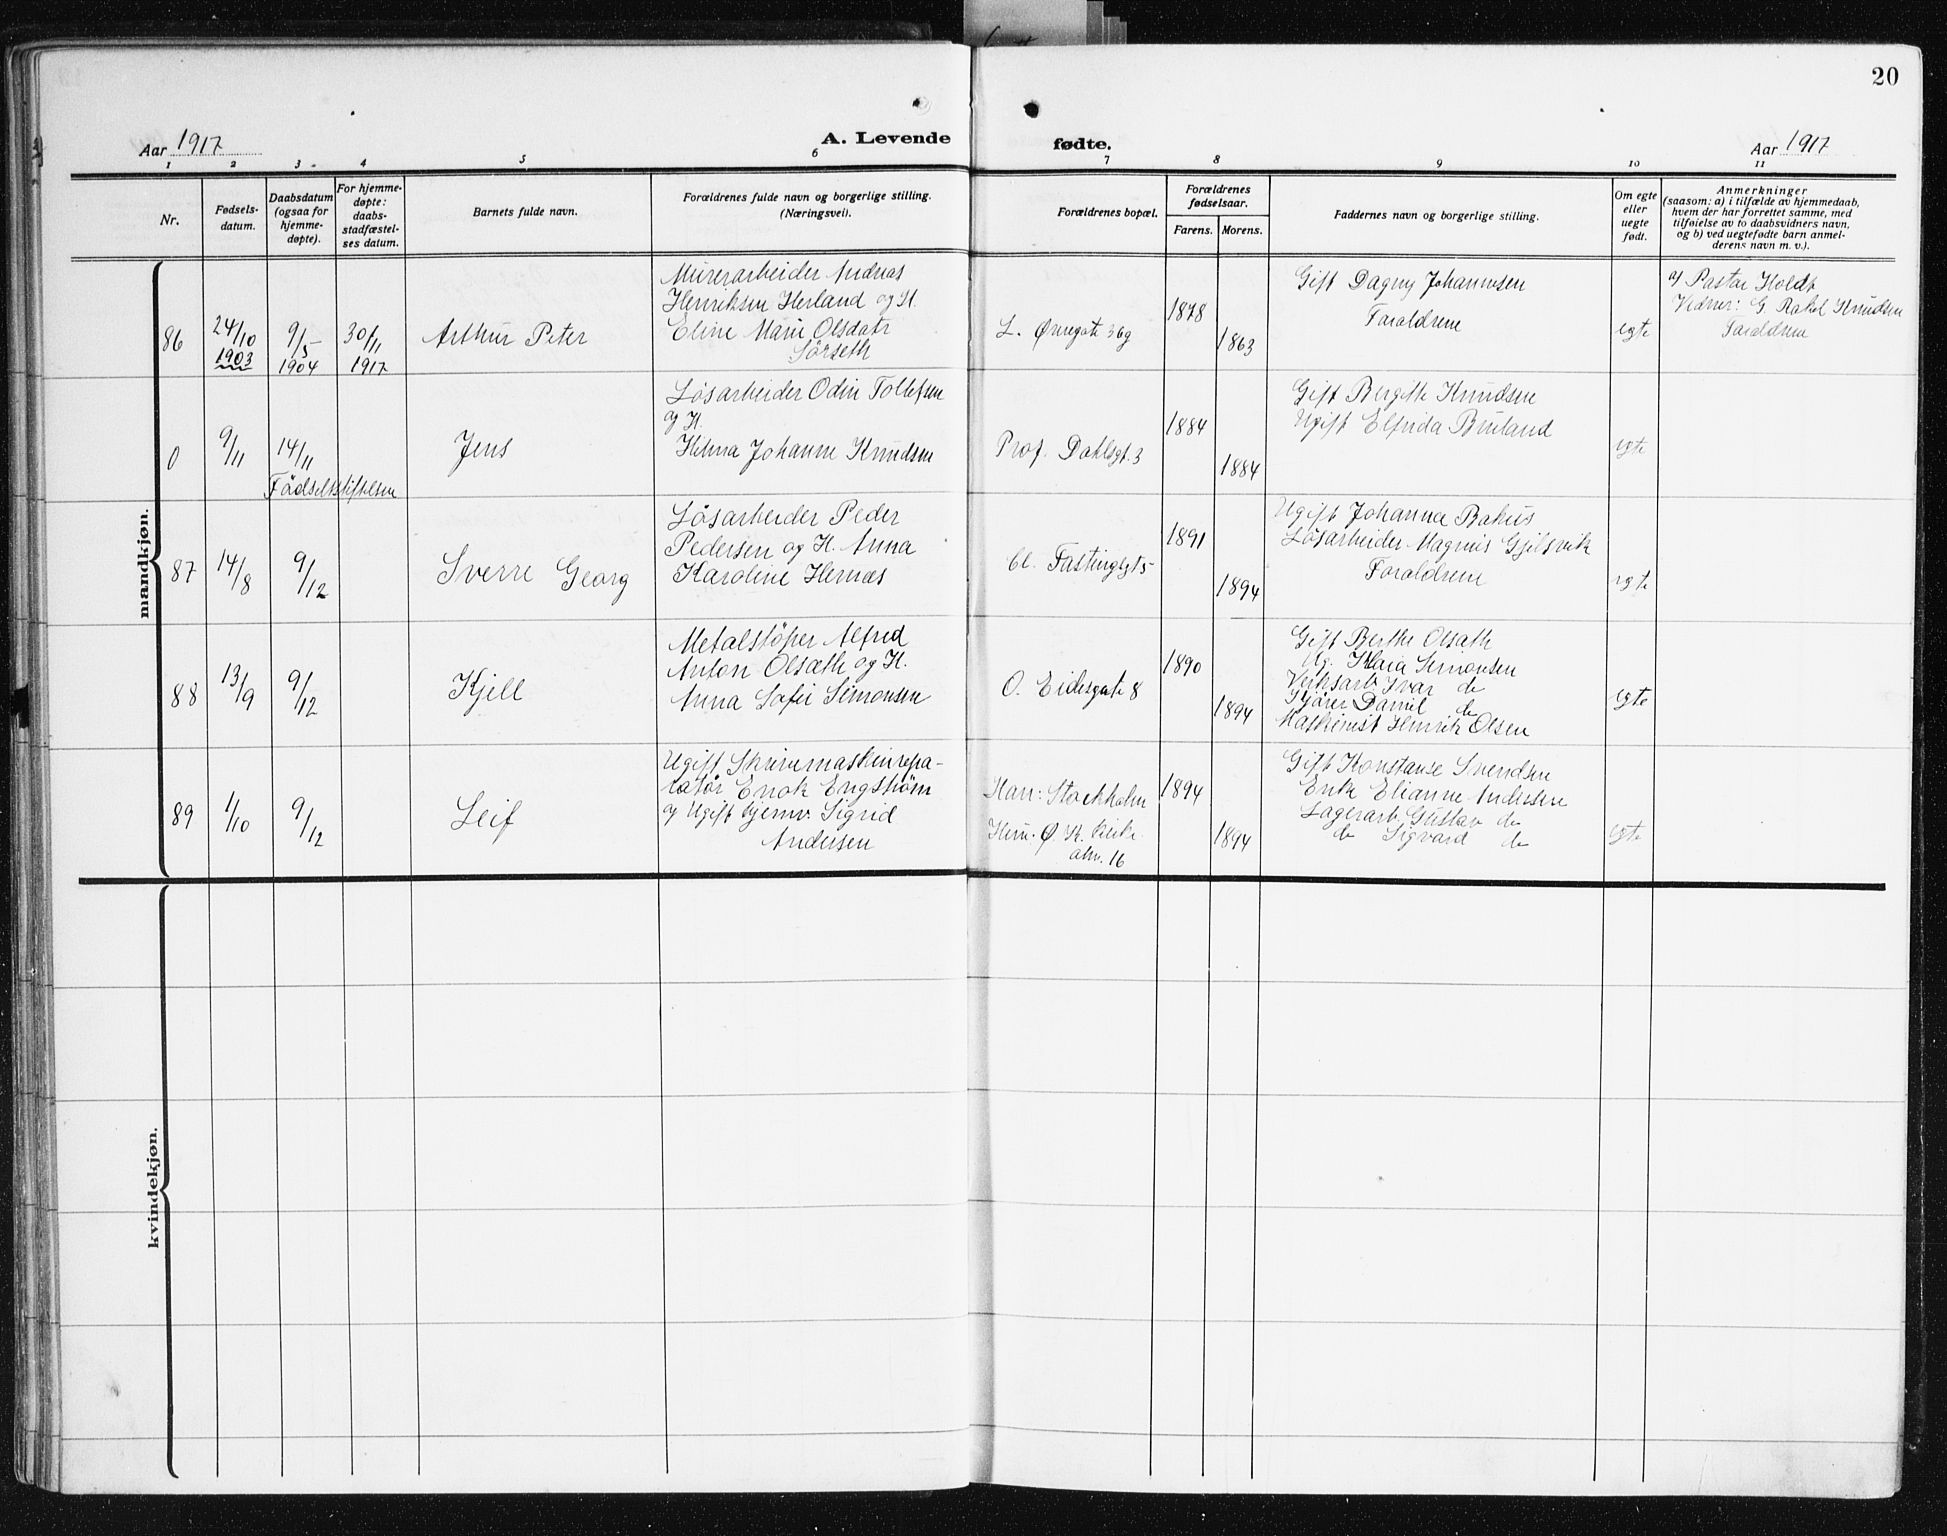 20
Aar 1917
A. Levende fødte.
Aar 1917
1 2 3 4 5 6 7 8 9 10 11
Nr.
Fødsels-
datum.
Daabsdatum
(ogsaa for
hjemme-
døpte).
For hjemme-
døpte:
daabs-
stadfæstel-
ses datum.
Barnets fulde navn.
Forældrenes fulde navn og borgerlige stilling.
(Næringsvei).
Forældrenes bopæl.
Forældrenes
fødselsaar.
Farens. Morens.
Faddernes navn og borgerlige stilling.
Om egte
eller
uegte
født.
Anmerkninger
(saasom: a) i tilfælde av hjemmedaab,
hvem der har forrettet samme, med
tilføielse av to daabsvidners navn,
og b) ved uegtefødte barn anmel-
derens navn m. v.).
mandkjøn.
86
24/10
1903
9/5
1904
30/11
1917
Arthur Peter
Murerarbeider Andreas
Henriksen Herland og H.
Eline Marie Olsdatr
Sørseth
L. Øvregate 36g
1878
1863
Gift Dagny Johannesen
Forældrene
egte
af Pastor Holdt
Vidner: G. Rakel Knudsen
Forældrene
0
9/11
14/11
Fødselsstiftelsen
Jens
Løsarbeider Odin Tollefsen
og H.
Helena Johanne Knudsen
Prof. Dahlsgt. 3
1884
1884
Gift Bergitte Knudsen
Ugift Elfrida Buland
egte
87
14/8
9/12
Sverre Georg
Løsarbeider Peder
Pedersen og H. Anna
Karoline Hernæs
Cl. Fastingsgt 5
1891
1894
Ugift Johanna Bakus
Løsarbeider Magnus Gjelsvik
Forældrene
egte
88
13/9
9/12
Kjell
Metalstøper Alfred
Anton Olsæth og H.
Anna Sofie Simonsen
O. Eidesgate 8
1890
1894
Gift Berthe Olsæth
Ug. Klara Simonsen
Verksarb Ivar do
Daniel do
Maskinist Henrik Olsen
egte
89
1/10
9/12
Leif
Ugift Skrivemaskinrepa-
ratør Enok Engstrøm
og Ugift hjemv. Sigrid
Andersen
Han: Stockholm
Hun: Ø. K. Kirke
alm. 16
1894
1894
Gift Konstanse Svendsen
Enke Elianne Andersen
Lagerarb. Gustav do
do Sigvard do
egte
kvindekjøn.